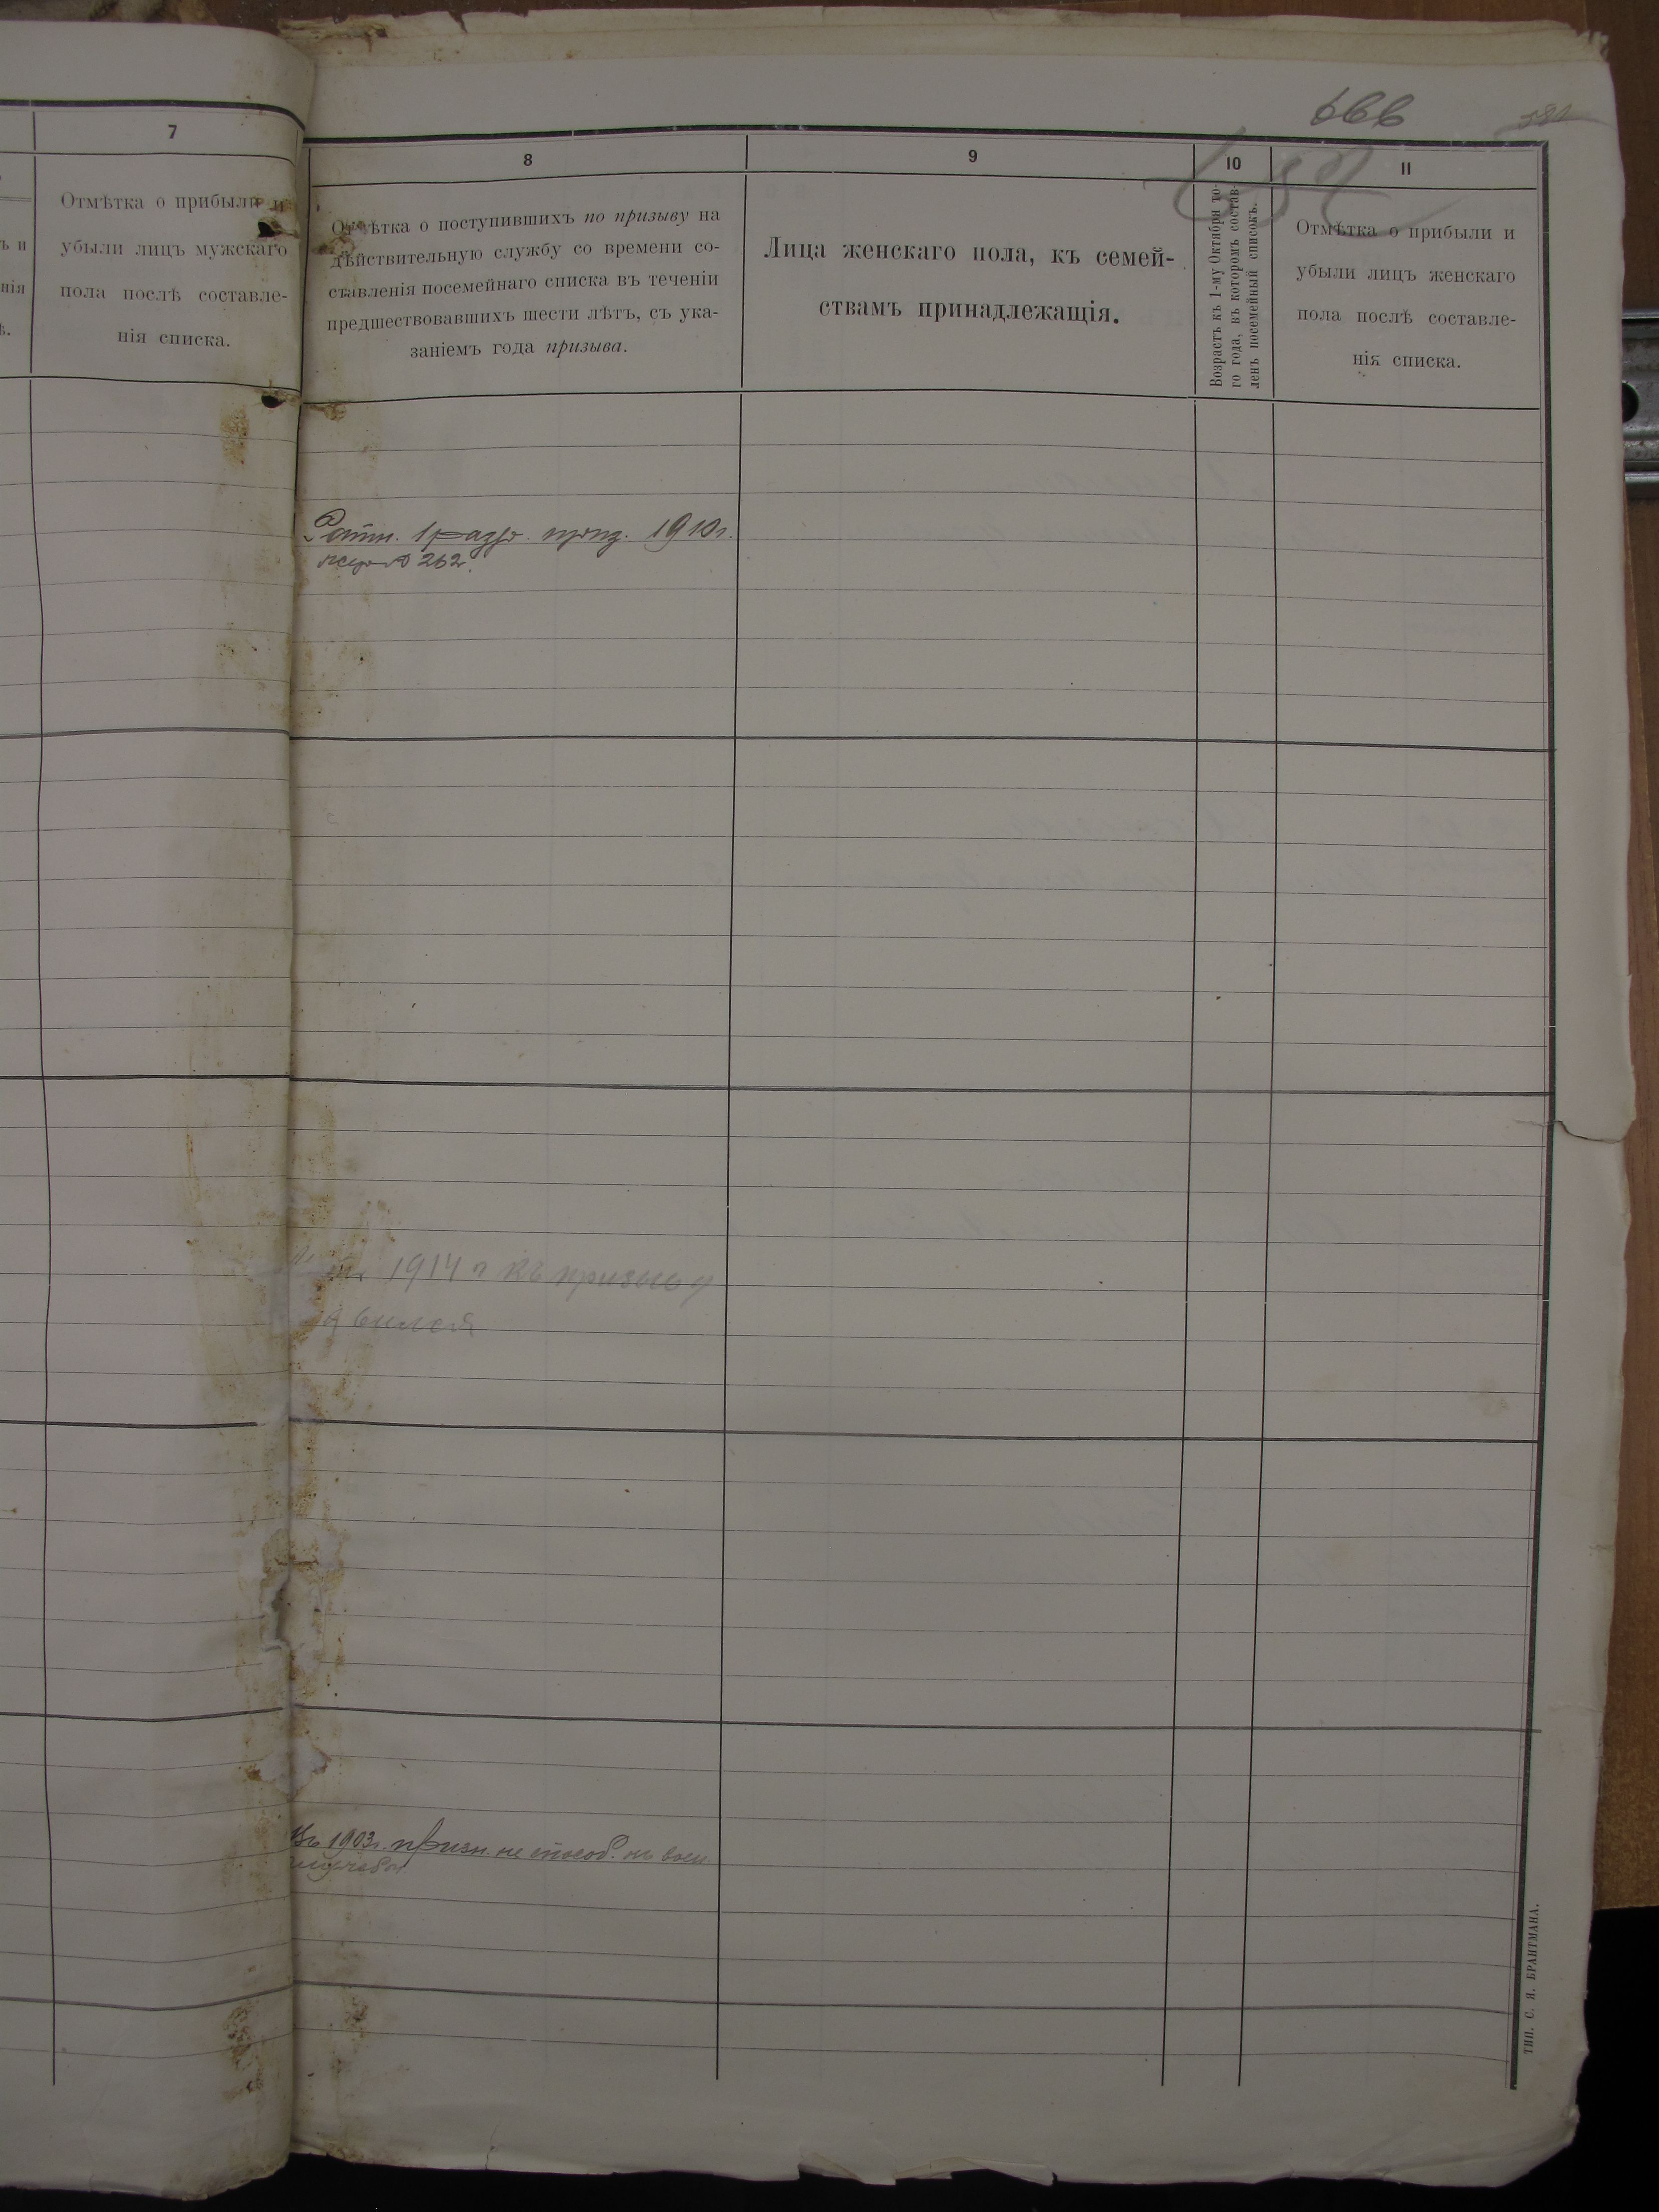 666
7
Отмѣтка о прибыли и
убыли лицъ мужскаго
пола послѣ составле-
нія списка.
8
Отмѣтка о поступившихъ по призыву на
дѣйствительную службу со времени со-
ставленія посемейнаго списка въ теченіи
предшествовавшихъ шести лѣтъ, съ ука-
заніемъ года призыва.
9
Лица женскаго пола, къ семей-
ствамъ принадлежащія.
10
Возрастъ къ 1-му Октября то-
го года, въ которомъ состав-
ленъ посемейный списокъ.
11
Отмѣтка о прибыли и
убыли лицъ женскаго
пола послѣ составле-
нія списка.
Ратн. 1 разр. 1910г.
262
1914 г къ призыву
явился
Въ 1903г. призн. не способ. къ воен
службѣ
ТИП. С. Я. БРАНТМАНА.